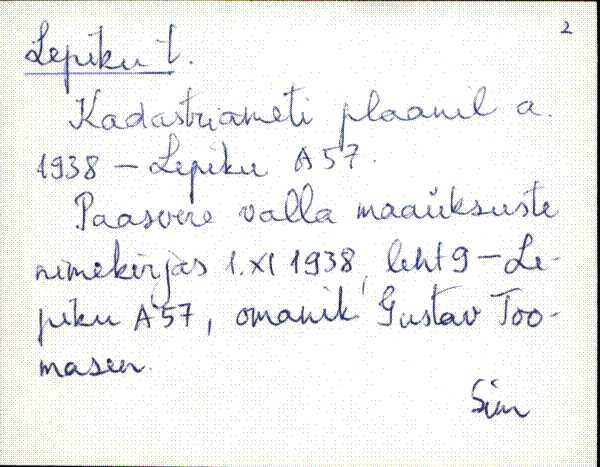 2
Lepiku t.
Kadastriameti plaanil a.
1938 – Lepiku A57.
Paasvere valla maaüksuste
nimekirjas 1.XI 1938, leht 9 – Le-
piku A57, omanik Gustav Too-
masen.